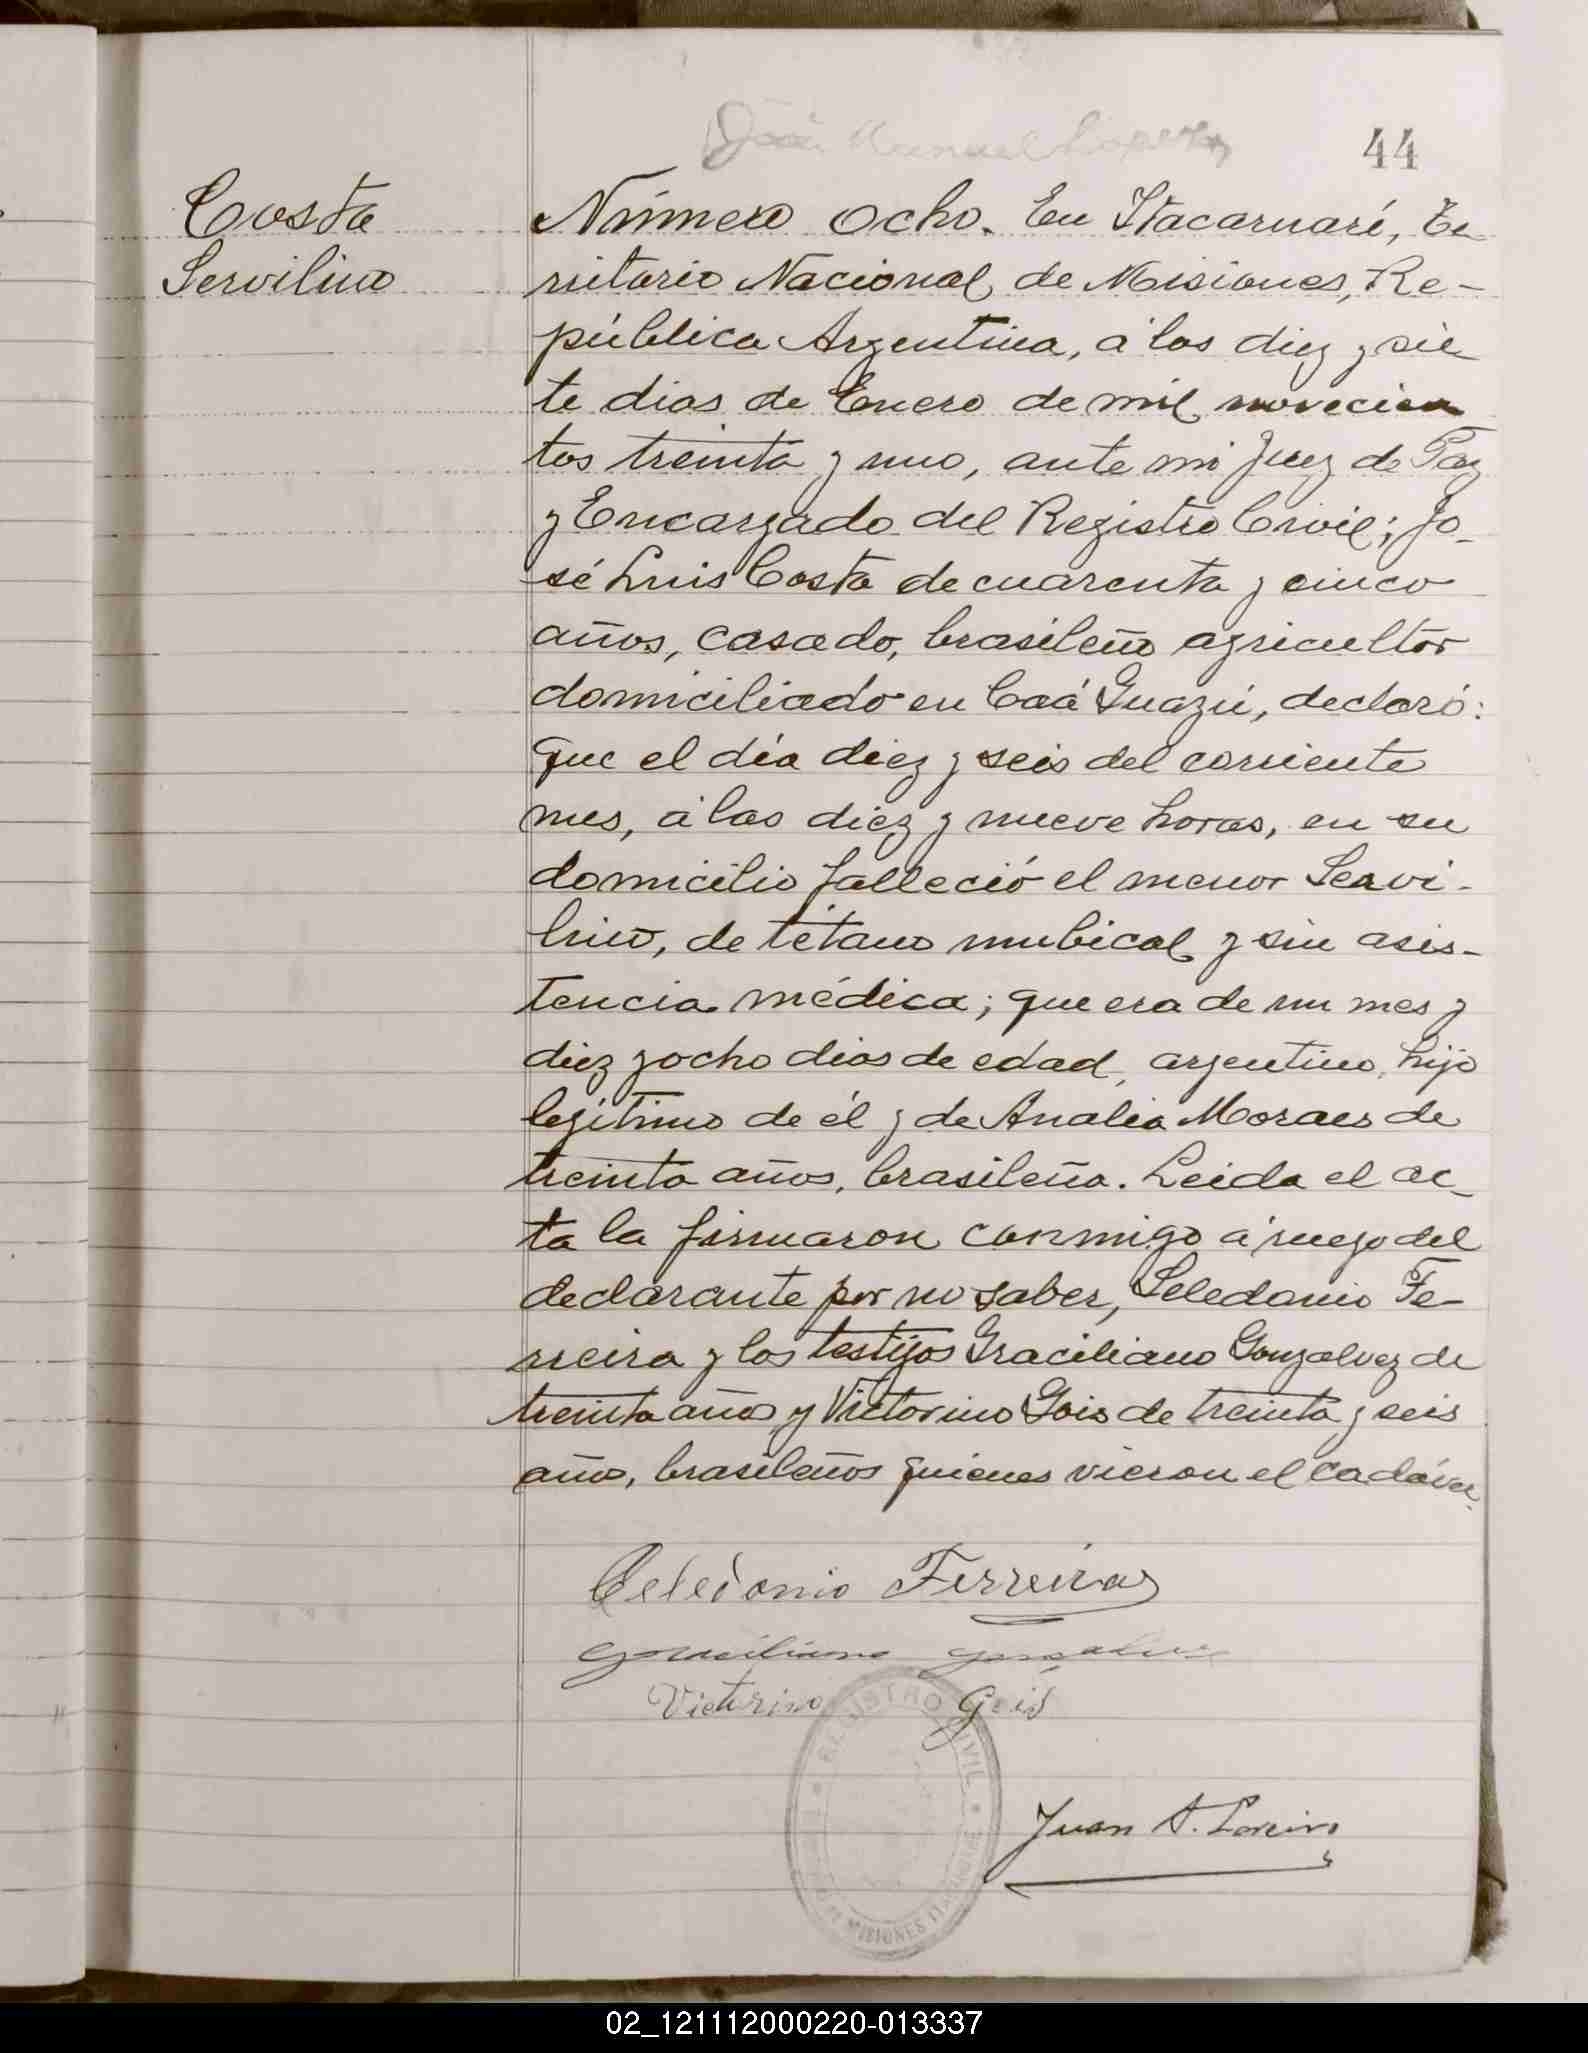 44
Costa
Servilino
Número ocho. En Itacaruaré, Te-
rritorio Nacional de Misiones, Re-
pública Argentina, á los diez y sie
te dias de Enero de mil novecien
tos treinta y uno, ante mi Juez de Paz
y Encargado del Registro Civil; Jo-
sé Luis Costa de cuarenta y cinco
años, casado, brasileño agricultor
domiciliado en Caá Guazú, declaró:
que el día diez y seis del corriente
mes, á las diez y nueve horas, en su
domicilio falleció el menor Servi-
lino, de tétano umbical y sin asis-
tencia médica; que era de un mes y
diez y ocho dias de edad, argentino, hijo
legítimo de él y de Analia Moraes de
treinta años, brasileña. Leida el ac-
ta la firmaron conmigo á ruego del
declarante por no saber, Seledonio Fe-
rreira y los testigos Graciliano Gonzalvez de
treinta años y Victorino Gois de treinta y seis
años, brasileños quienes vieron el cadáver.
Celedonio Ferreira
Graciliano
Victorino Gois
REGISTRO CIVIL
MISIONES ITACARUARE
Juan A. Loreiro
02_121112000220-013337